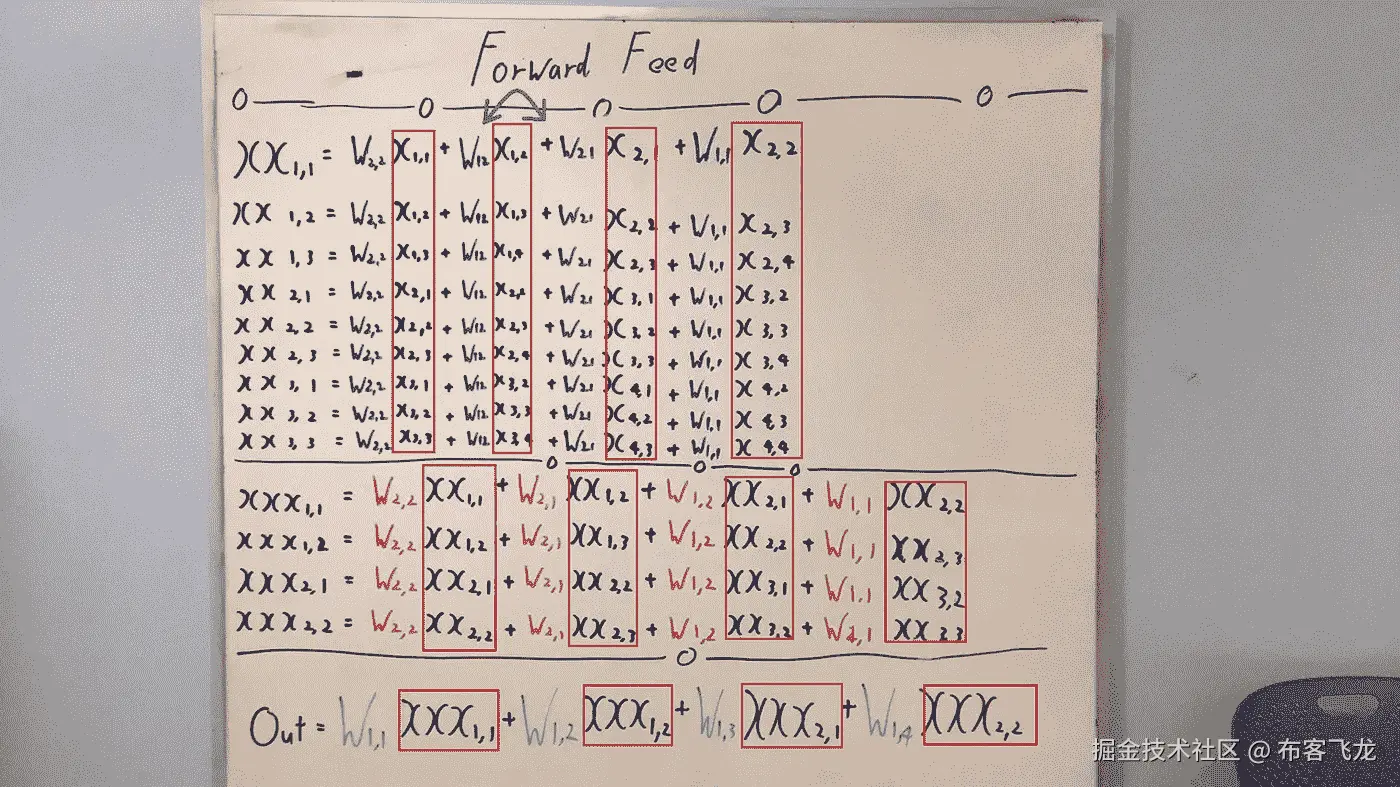 Forward Feed
XX1,1 = W2,2 X1,1 + W12 X1,2 + W21 X2,1 + W1,1 X2,2
XX 1,2 = W2,2 X1,2 + W12 X1,3 + W21 X2,2 + W1,1 X2,3
XX 1,3 = W2,2 X1,3 + W12 X1,4 + W21 X2,3 + W1,1 X2,4
XX 2,1 = W2,2 X2,1 + W12 X2,2 + W21 X3,1 + W1,1 X3,2
XX 2,2 = W2,2 X2,2 + W12 X2,3 + W21 X3,2 + W1,1 X3,3
XX 2,3 = W2,2 X2,3 + W12 X2,4 + W21 X3,3 + W1,1 X3,4
XX 3,1 = W2,2 X3,1 + W12 X3,2 + W21 X4,1 + W1,1 X4,2
XX 3,2 = W2,2 X3,2 + W12 X3,3 + W21 X4,2 + W1,1 X4,3
XX 3,3 = W2,2 X3,3 + W12 X3,4 + W21 X4,3 + W1,1 X4,4
XXX1,1 = W2,2 XX1,1 + W2,1 XX1,2 + W1,2 XX2,1 + W1,1 XX2,2
XXX1,2 = W2,2 XX1,2 + W2,1 XX1,3 + W1,2 XX2,2 + W1,1 XX2,3
XXX2,1 = W2,2 XX2,1 + W2,1 XX2,2 + W1,2 XX3,1 + W1,1 XX3,2
XXX2,2 = W2,2 XX2,2 + W2,1 XX2,3 + W1,2 XX3,2 + W1,1 XX33
Out = W1,1 XXX1,1 + W1,2 XXX1,2 + W1,3 XXX2,1 + W1,4 XXX2,2
掘金技术社区 @ 布客飞龙